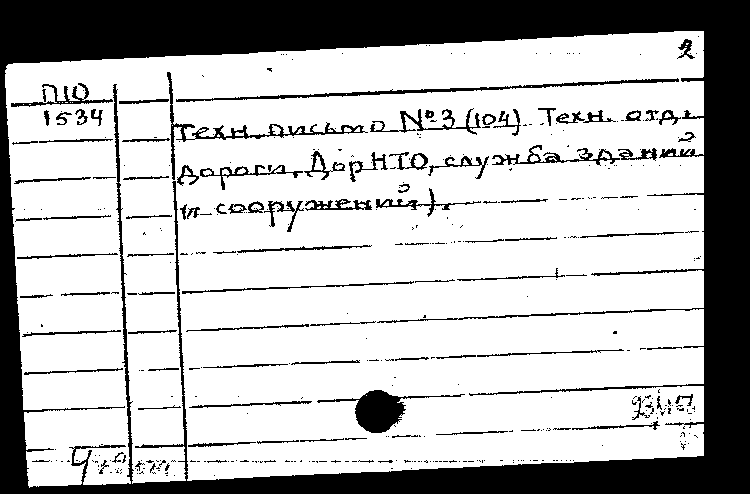 2
П10
1534
Техн. письмо № 3 (104) Техн. отд.
дороги, ДорНТО, служба зданий
и сооружений).